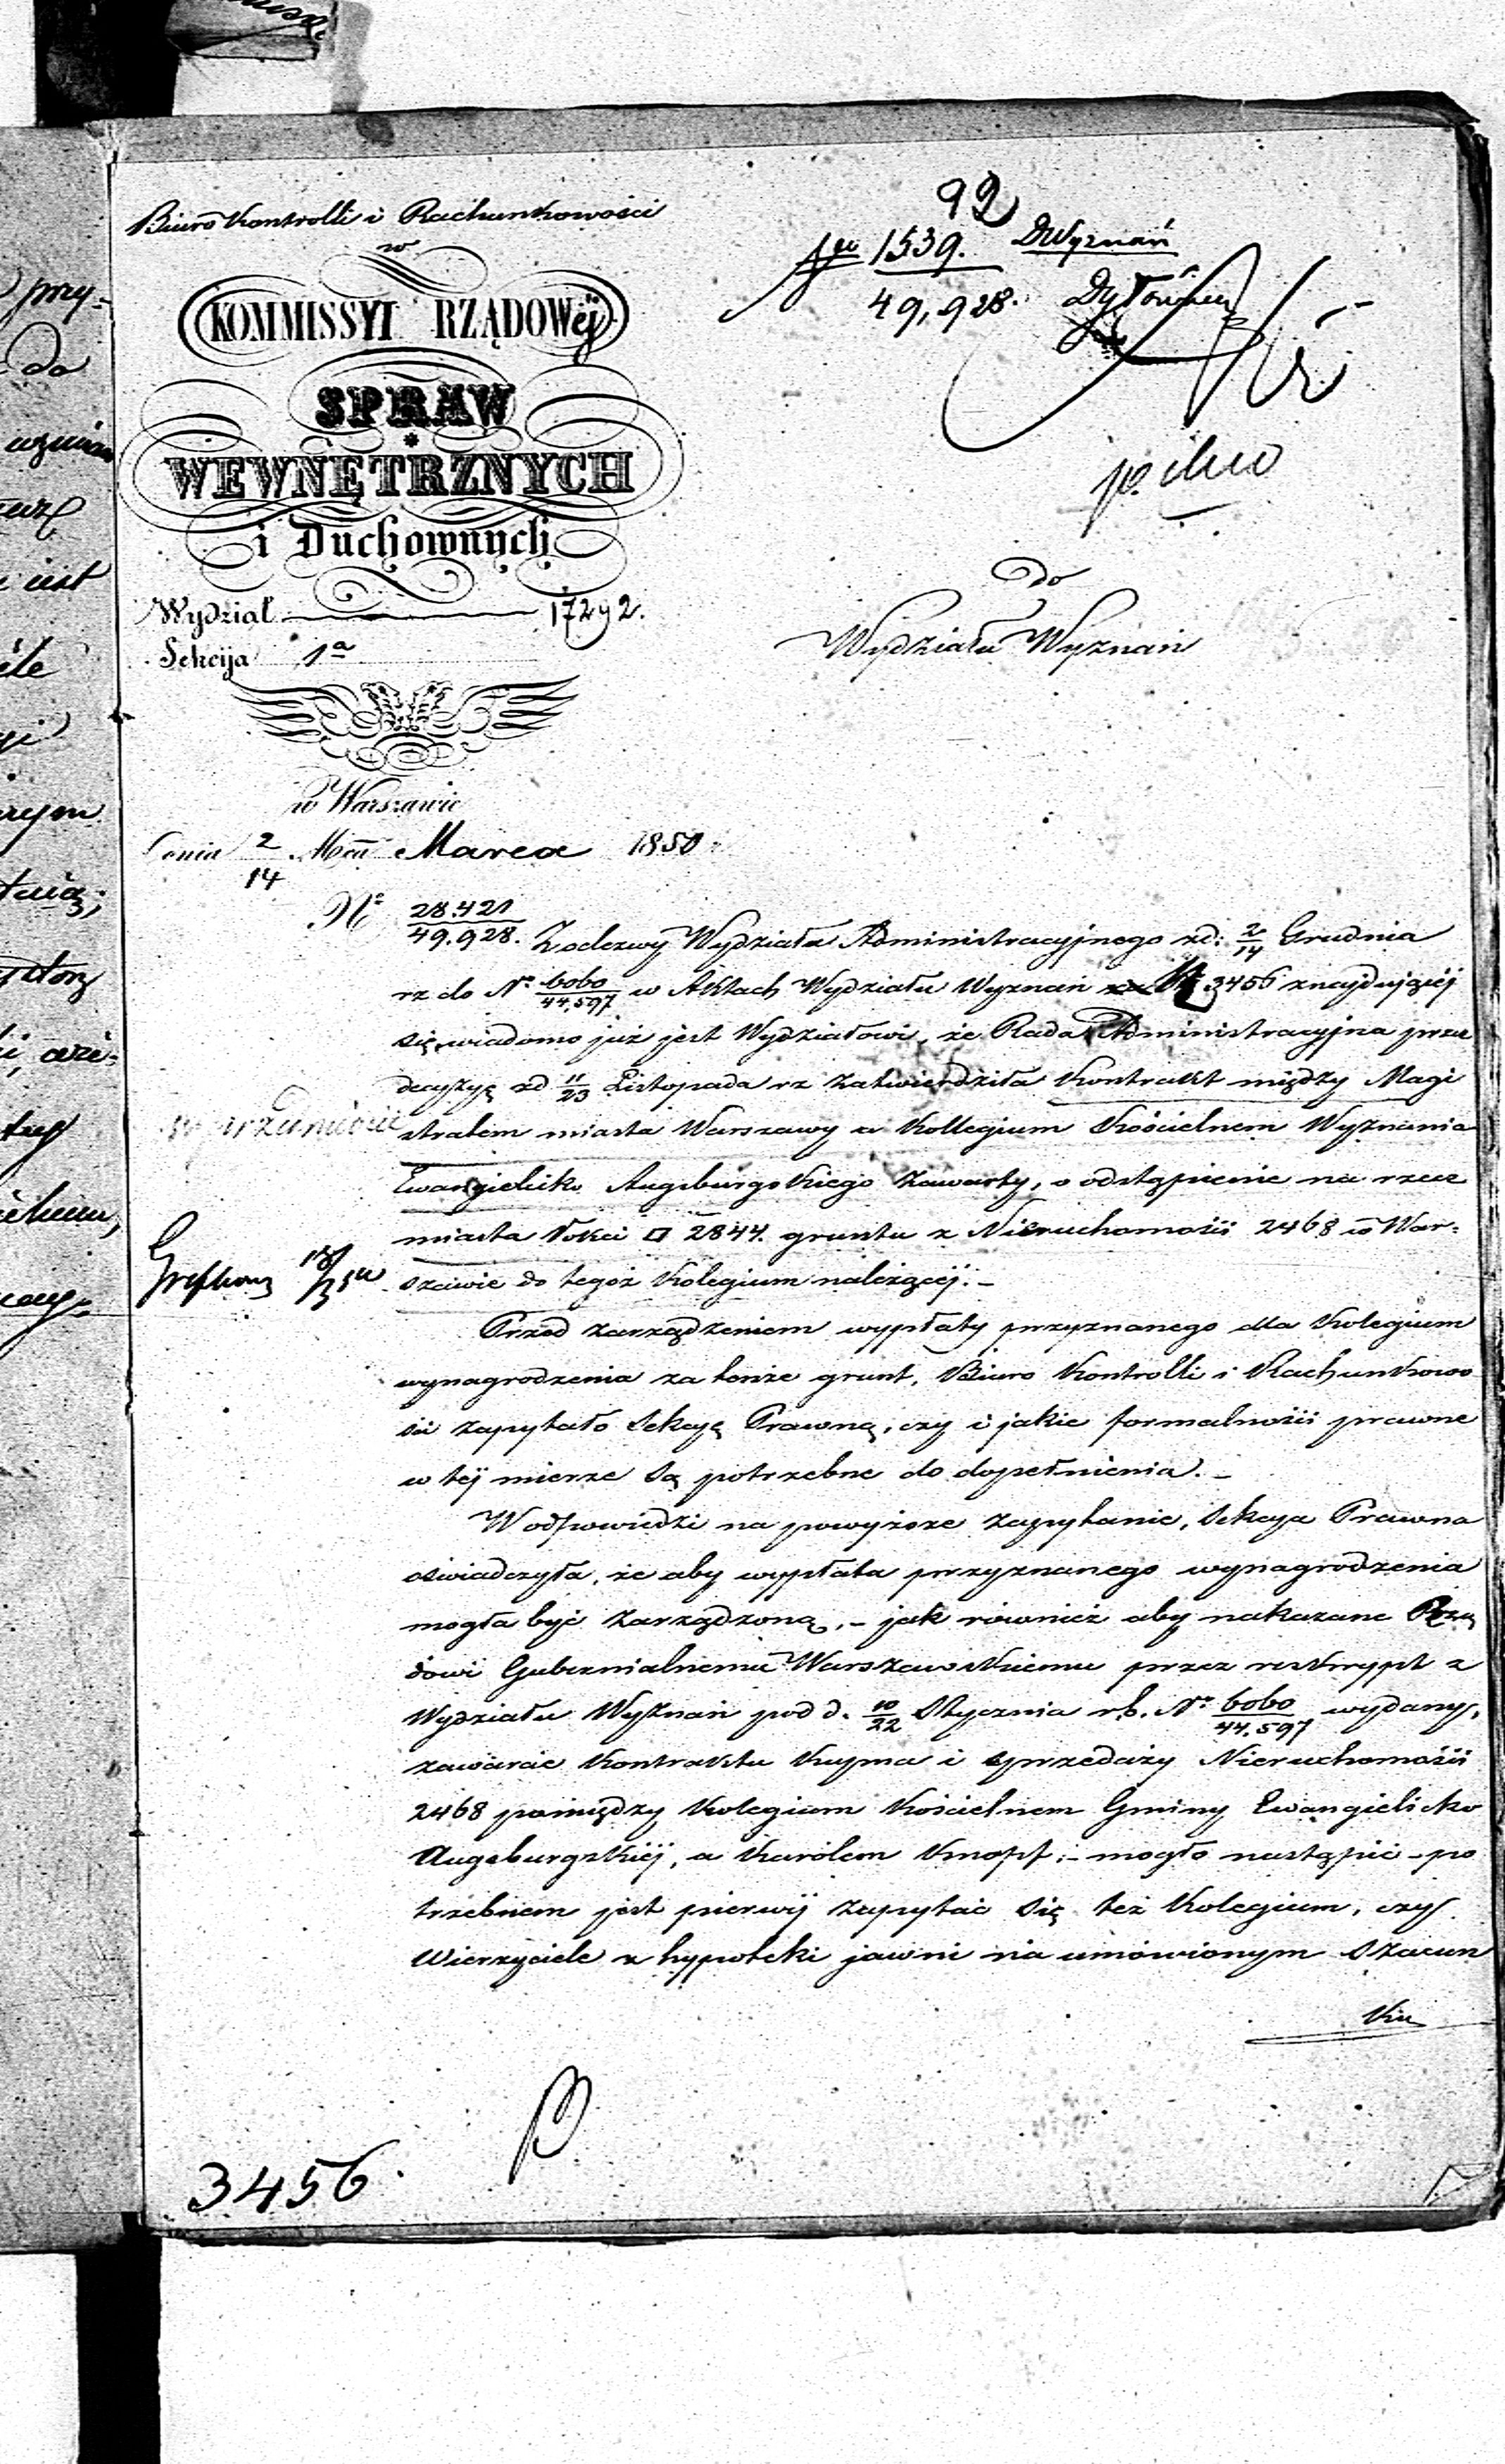 Biuro Kontrolli i Rachunkowości
w
KOMMISSYI RZĄDOWéj
SPRAW
WEWNĘTRZNYCH
i Duchownych
Wydział 17292.
Sekcija 1a
w Warszawie
Dnia 2/14 Mca Marca 1850
N° 28.421/49.928.
92
1539.
49,928.
DWyznań
pilno
Do
Wydziału Wyznań
Z odezwy Wydziału Administracyjnego zd: 2/14 Grudnia
rz do N° 6060/44,597 w Aktach Wydziału Wyznań 3456 znajdującéj
się, wiadomo już jest Wydziałowi, że Rada Administracyjna przez
decyzyę zd 11/23 Listopada rz zatwierdziła Kontrakt między Magi
stratem miasta Warszawy a Kollegium Kościelnem Wyznania
Ewangielicko Augsburgskiego zawarty, o odstąpienie na rzecz
miasta łokci □ 2844. gruntu z Nieruchomości 2468 w War-
szawie do tegoż Kolegium należącéj.-
Przed zarządzeniem wypłaty przyznanego dla Kolegium
wynagrodzenia za tenże grunt, Biuro Kontrolli i Rachunkowo
ści zapytało Sekcyę Prawną, czy i jakie formalności prawne
w téj mierze są potrzebne do dopełnienia.-
W odpowiedzi na powyższe zapytanie, Sekcya Prawna
oświadczyła, że aby wypłata przyznanego wynagrodzenia
mogła być zarządzoną,- jak również aby nakazane Rzą
dowi Gubernialnemu Warszawskiemu przez reskrypt z
Wydziału Wyznań pod d. 10/22 Stycznia r.b. N° 6060/44.597 wydany,
zawarcie Kontraktu Kupna i sprzedaży Nieruchomości
2468 pomiędzy Kolegium Kościelnem Gminy Ewangielicko
Augsburgskiéj, a Karolem Knopf;- mogło nastąpić - po
trzebnem jest pierwéj zapytać się też Kolegium, czy
Wierzyciele z hypoteki jawni na umówionym szacun
ku
3456.